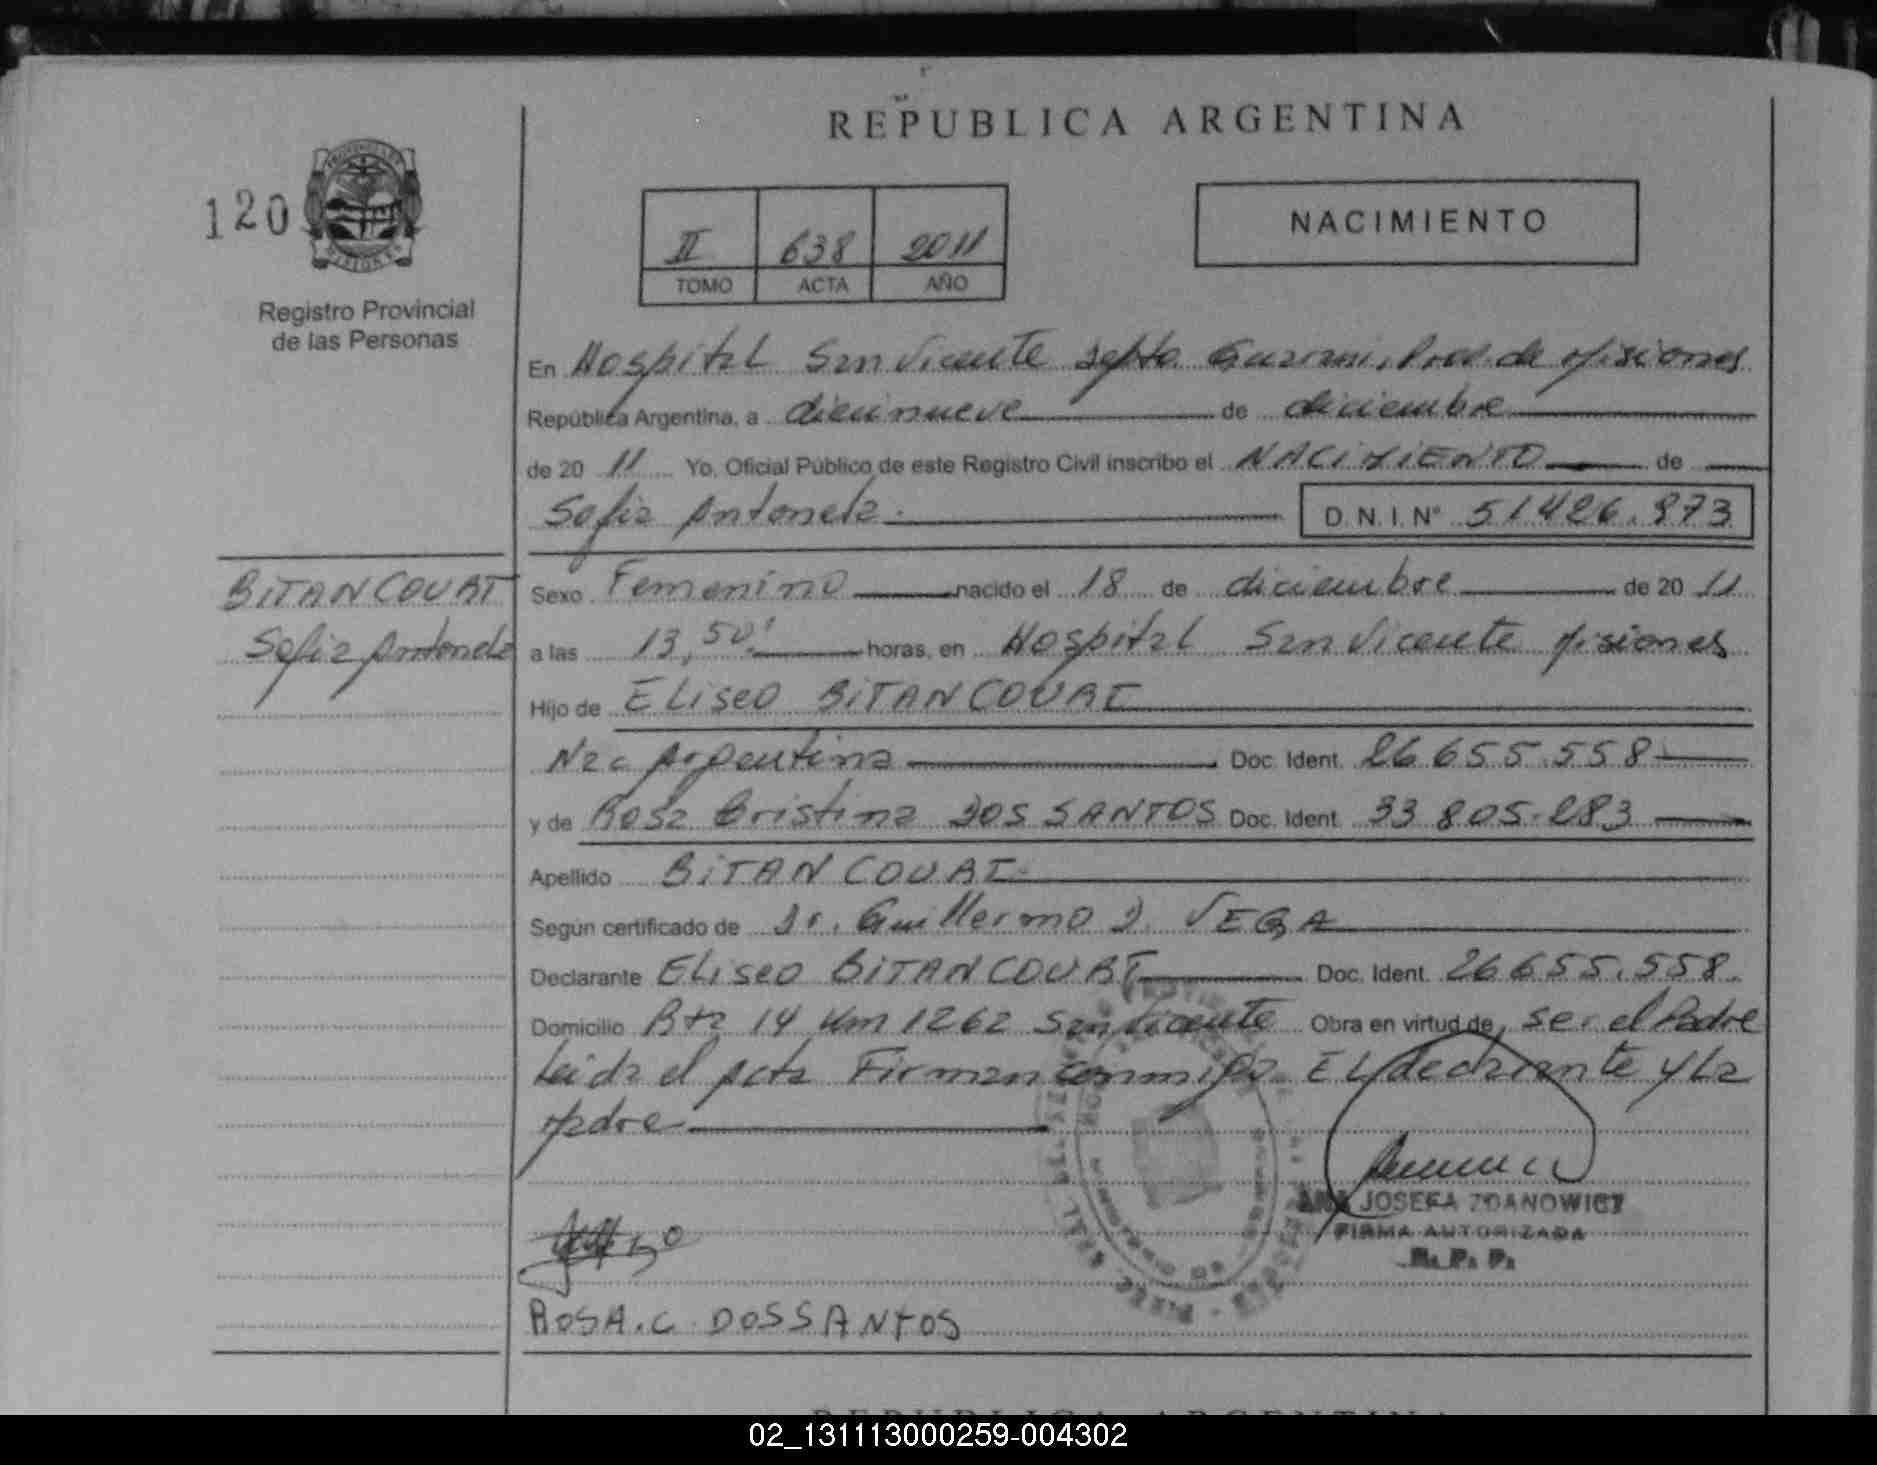 REPUBLICA ARGENTINA
120
Registro Provincial
de las Personas
II 638 2011
TOMO ACTA AÑO
NACIMIENTO
En Hospital San Vicente Depto. Guarani, Prov. de Misiones
República Argentina, a diecinueve de diciembre
de 20 11 Yo, Oficial Público de este Registro Civil inscribo el NACIMIENTO de
Sofia Antonela.
D.N.I. N° 51426.973
BITANCOURT
Sofia Antonela
Sexo Femenino nacido el 18 de diciembre de 20 11
a las 13,50' horas, en Hospital San Vicente Misiones
Hijo de ELiseo BITANCOURT
Nac Argentina Doc. Ident. 26 655.558
y de Rosa Cristina DOS SANTOS Doc. Ident. 33 805.283
Apellido BITANCOURT
Según certificado de Dr. Guillermo D. VEGA
Declarante ELiseo BITANCOURT Doc. Ident. 26 655.558
Domicilio Rta 14 Km 1262 San Vicente Obra en virtud de ser el Padre
Leida el Acta Firman conmigo EL declarante y La
Madre
ANA JOSEFA ZDANOWICZ
FIRMA AUTORIZADA
R. P. P.
ROSA. C. DOSSANTOS
REPUBLICA ARGENTINA
02_131113000259-004302